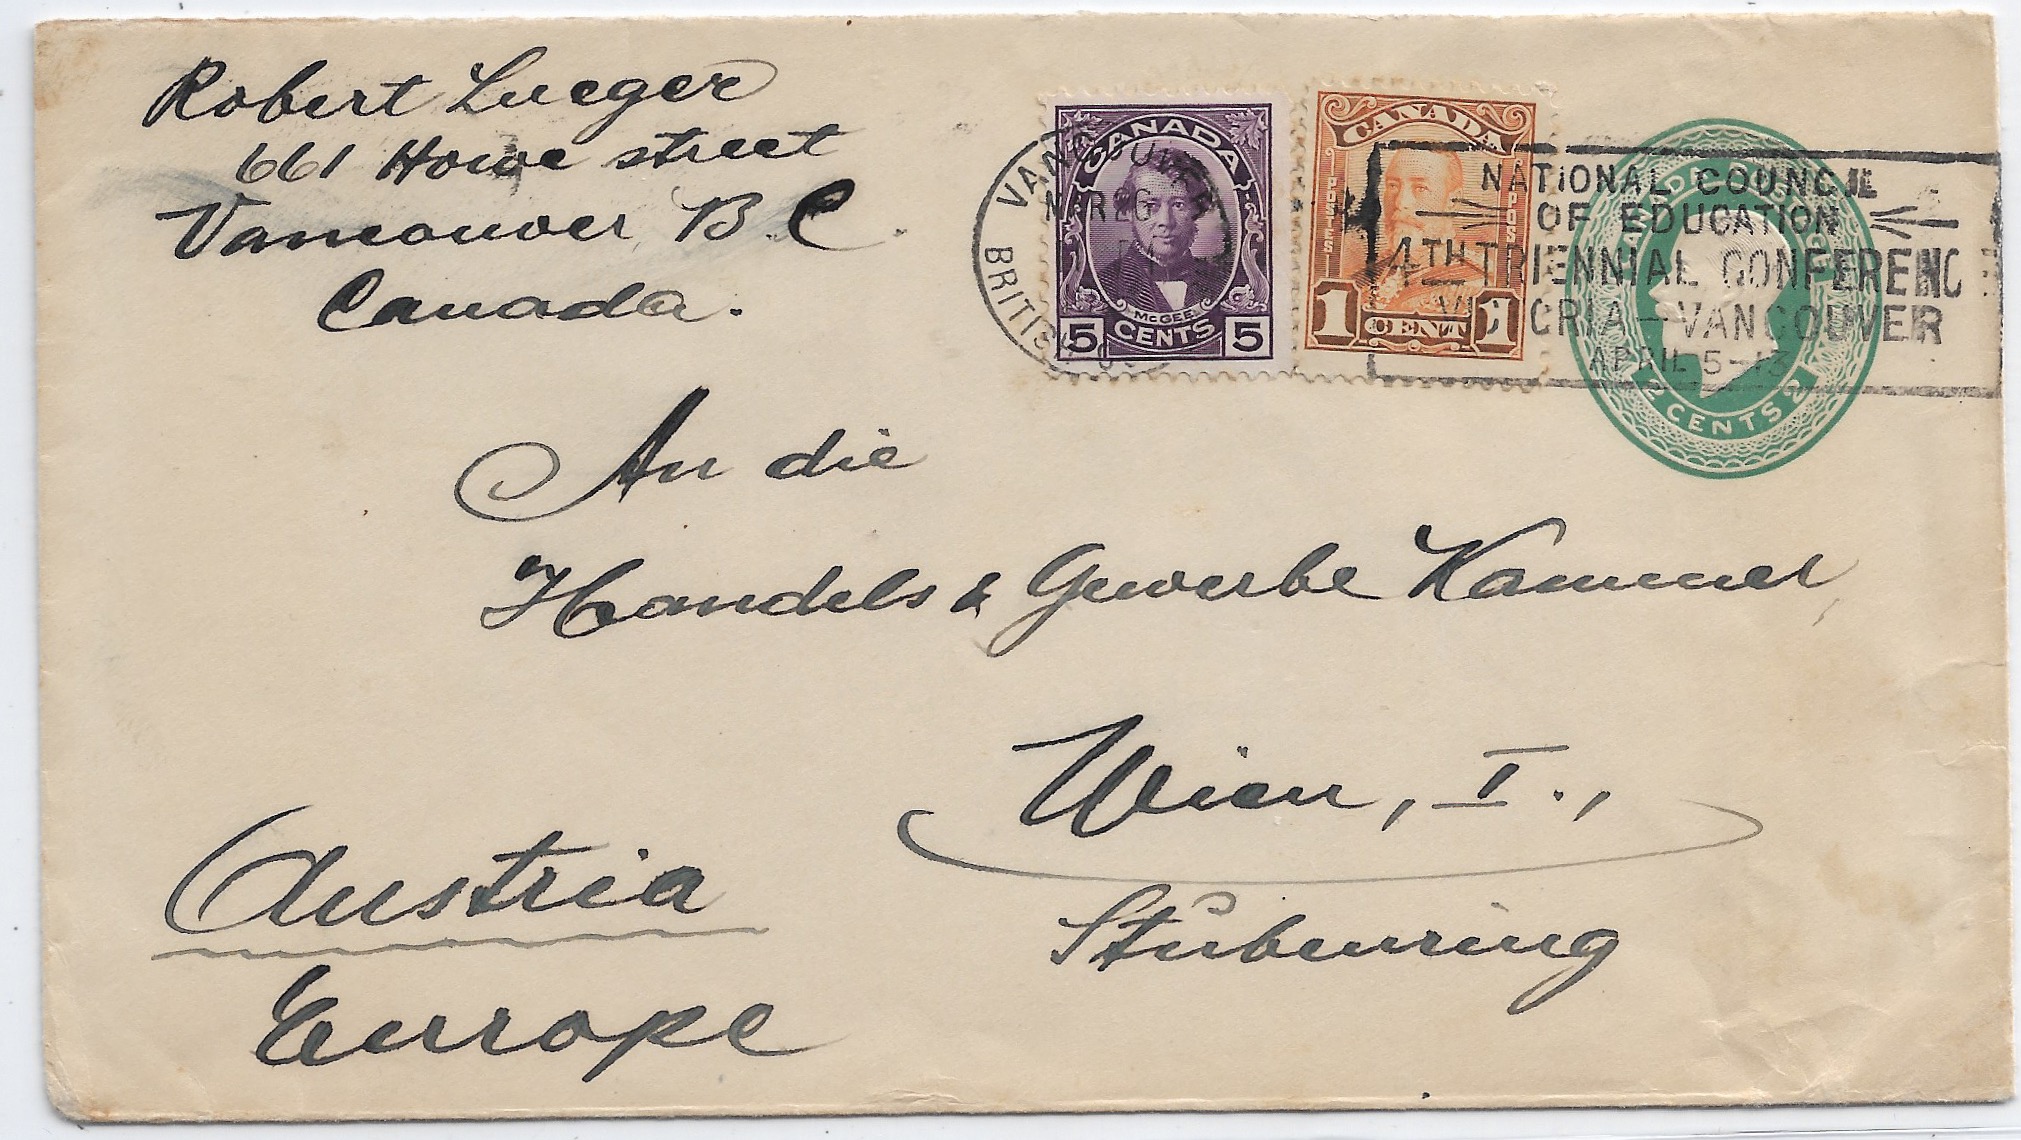 Robert Lueger
661 Howe street
Vancouver B.C.
Canada.
VANCOUVER
BRITISH
CANADA
McGEE
5 CENTS 5
CANADA
POSTES POSTAGE
1 CENT 1
NATIONAL COUNCIL
OF EDUCATION
4TH TRIENNIAL CONFERENCE
VICTORIA - VANCOUVER
APRIL 5-13
2 CENTS 2
An die
Handels & Gewerbe Kammer,
Wien, I.,
Stubenring
Austria
Europe